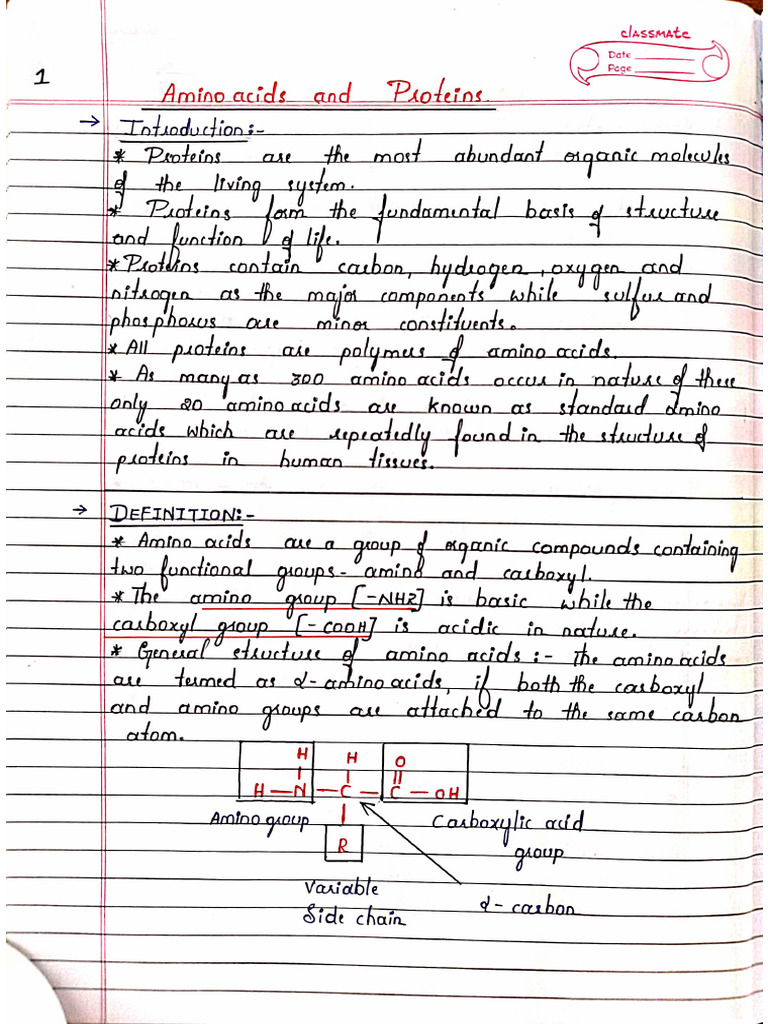 classmate
Date
Page
1
Amino acids and Proteins
→ Introduction:-
* Proteins are the most abundant organic molecules
of the living system.
* Proteins form the fundamental basis of structure
and function of life.
* Proteins contain carbon, hydrogen, oxygen and
nitrogen as the major components while sulfur and
phosphorus are minor constituents.
* All proteins are polymers of amino acids.
* As many as 300 amino acids occur in nature of these
only 20 amino acids are known as standard amino
acids which are repeatedly found in the structure of
proteins in human tissues.
→ DEFINITION:-
* Amino acids are a group of organic compounds containing
two functional groups- amino and carboxyl.
* The amino group [-NH2] is basic while the
carboxyl group [-COOH] is acidic in nature.
* General structure of amino acids :- The amino acids
are termed as α-amino acids, if both the carboxyl
and amino groups are attached to the same carbon
atom.
H H O
H — N — C — C — OH
Amino group Carboxylic acid
R group
Variable α- carbon
Side chain